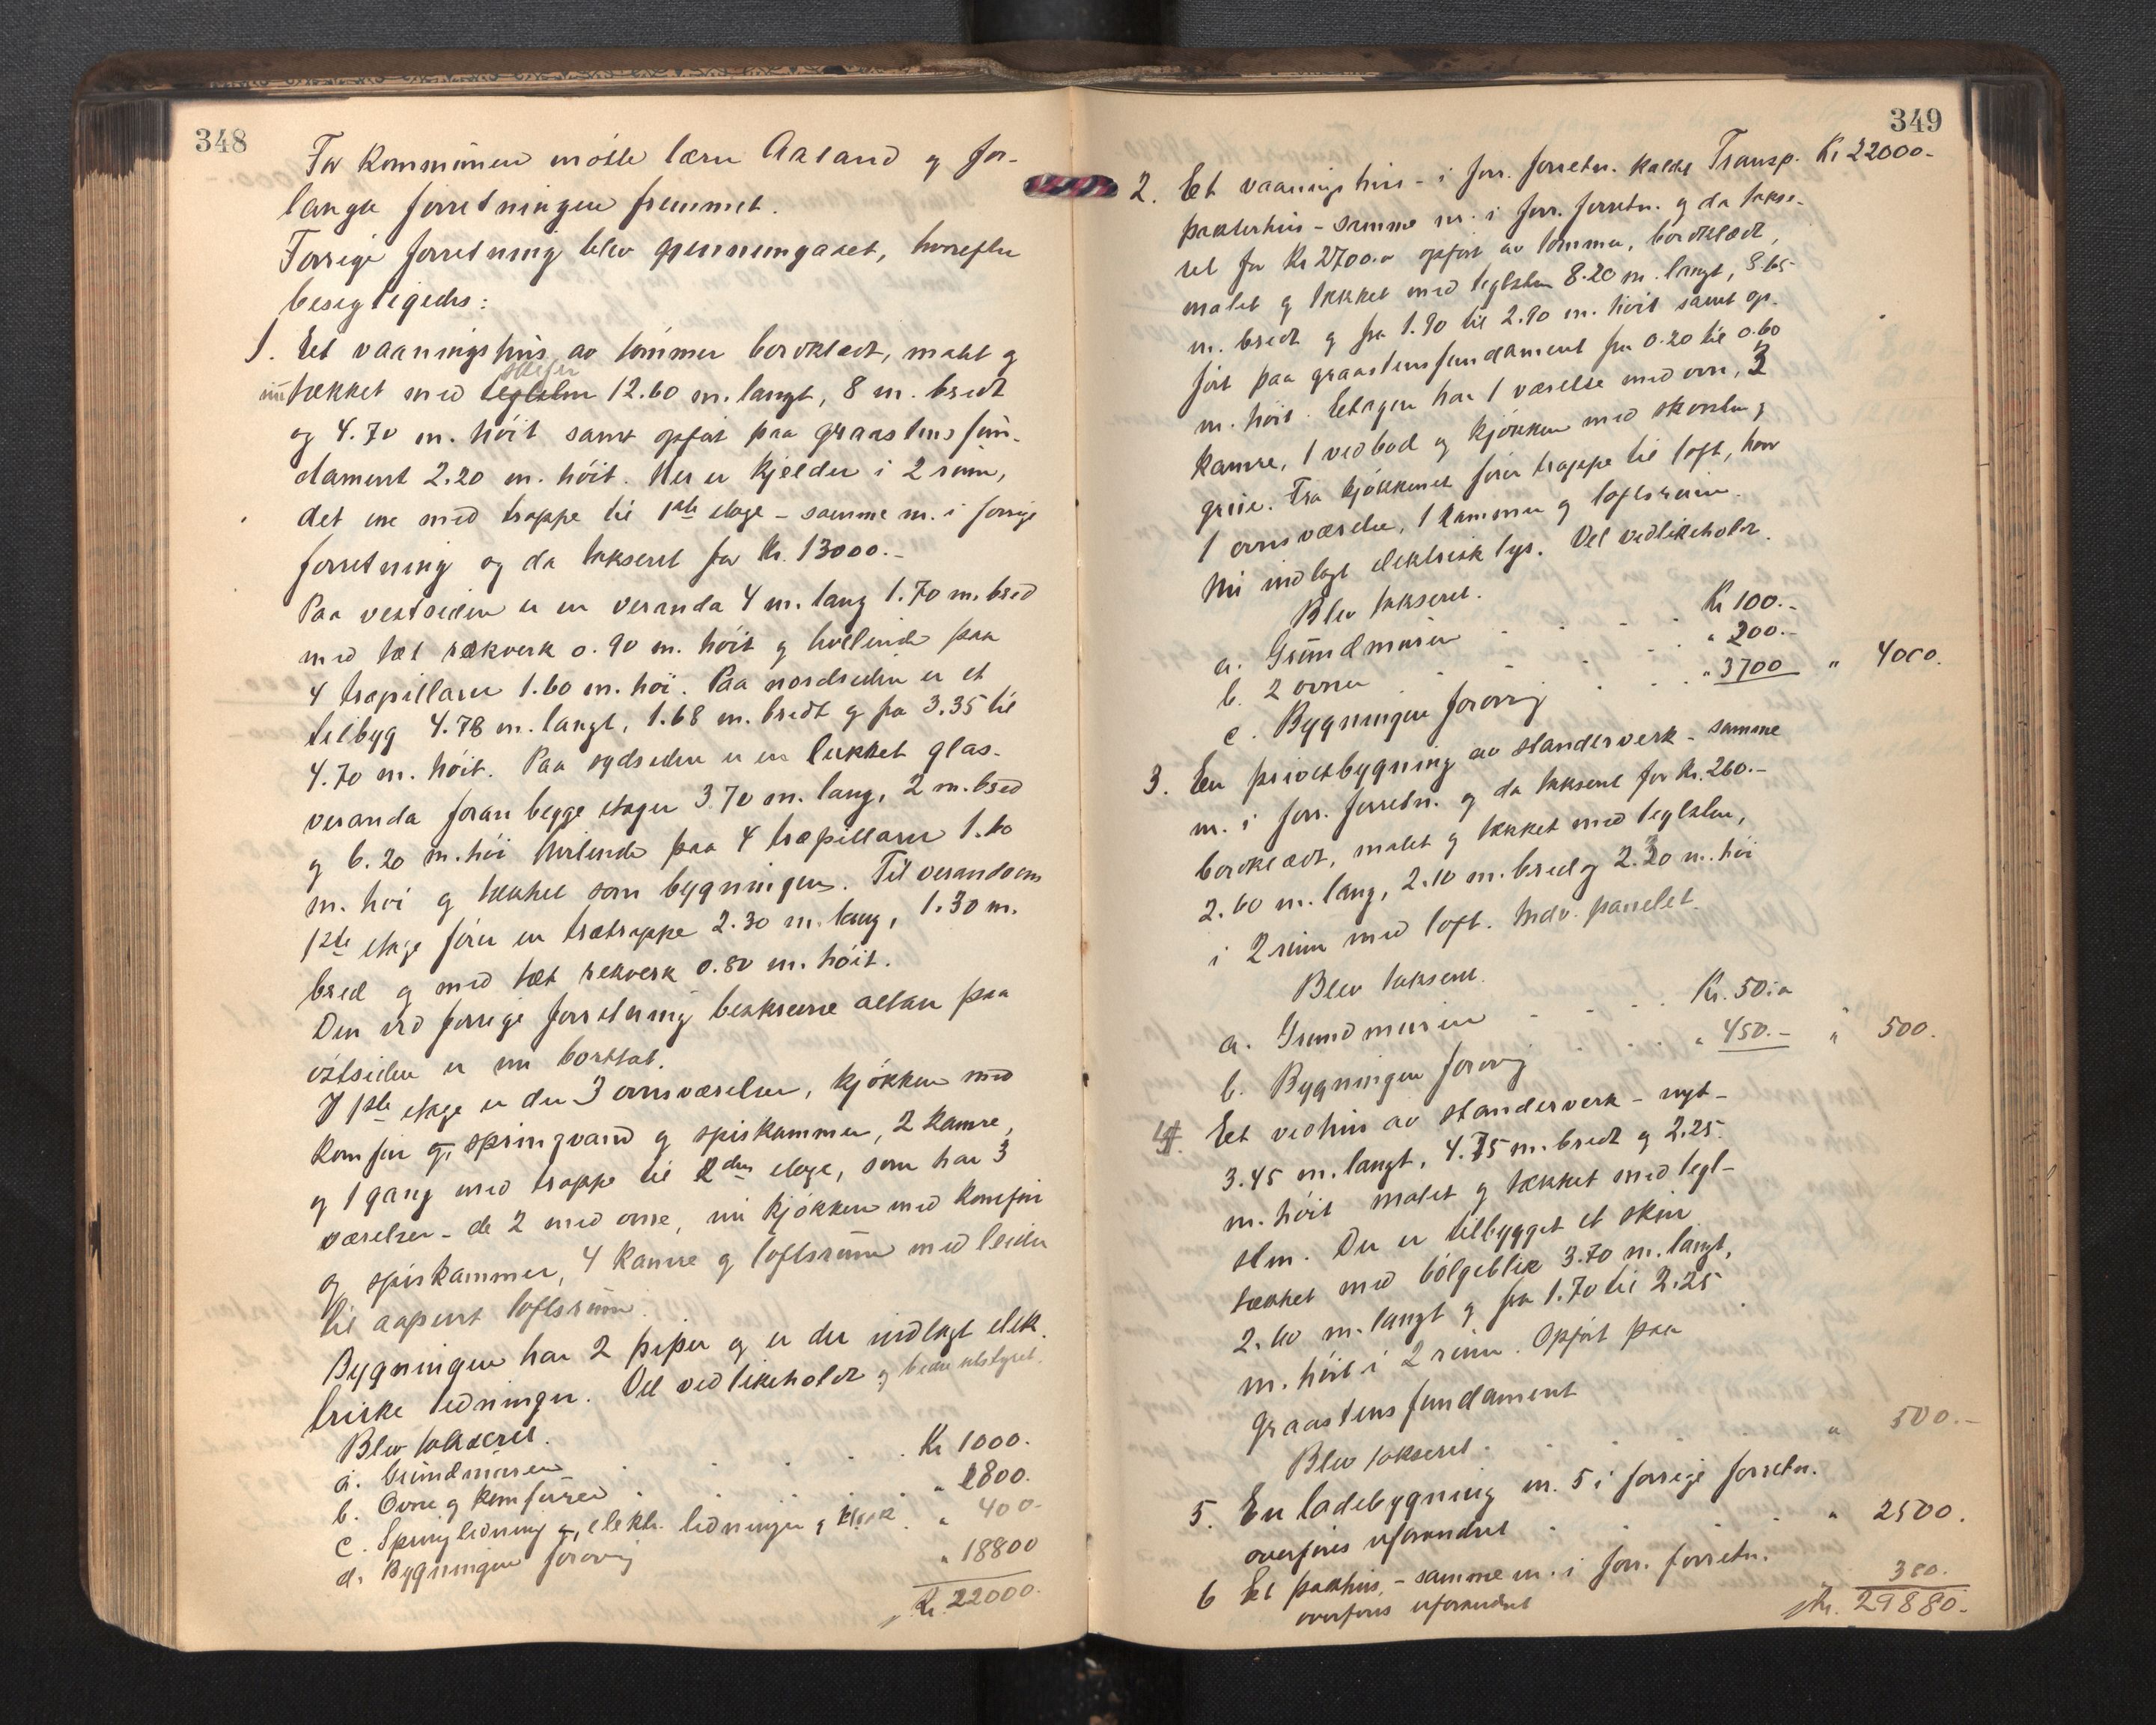 348
For kommunen møtte lærer Aaland og for-
langte forretningen fremmet.
Forrige forretning blev gjennemgaaet, hvorefter
besigtigedes:
1. Et vaaningshus av tømmer bordklædt, malt og
skifer
nu tækket med teglsten 12.60 m. langt, 8 m. bredt
og 4.70 m. høit samt opført paa graastensfun-
dament 2.20 m. høit. Her er kjelder i 2 rum,
det ene med trappe til 1ste etage - samme nr. i forrige
forretning og da takseret for Kr. 13000.-
Paa vestsiden er en veranda 4 m. lang 1.70 m. bred
med tæt rækverk 0.90 m. høit og hvilende paa
4 træpillarer 1.60 m. høi. Paa nordsiden er et
tilbyg 4.78 m. langt, 1.68 m. bredt og fra 3.35 til
4.70 m. høit. Paa sydsiden er en lukket glas-
veranda foran begge etager 3.70 m. lang, 2 m. bred
og 6.20 m. høi hvilende paa 4 træpillarer 1.60
m. høi og tækket som bygningen. Til verandaens
1ste etage fører en trætrappe 2.30 m. lang, 1.30 m.
bred og med tæt rekverk 0.80 m. høit.
Den ved forrige forretning beskrevne altan paa
østsiden er nu borttat.
I 1ste etage er der 3 ovnsværelser, kjøkken med
komfur og springvand og spiskammer, 2 kamre,
og 1 gang med trappe til 2den etage, som har 3
værelser - de 2 med ovne, nu kjøkken med komfur
og spiskammer, 4 kamre og loftsrum med leider
til aapent loftsrum.
Bygningen har 2 piper og er der indlagt elek-
triske ledninger. Vel vedlikeholdt og bedre utstyret.
Blev takseret.
a. Grundmuren . . . . Kr 1000.
b. Ovne og komfurer . . . . " 1800.
c. Springledning og elektr. ledninger og . " 400-
d. Bygningen forøvrig " 18800
Kr. 22000.
349
Transp. Kr 22000-
2. Et vaaningshus - i forr. forretn. kaldt
pakterhus - samme nr. i forr. forretn. og da takse-
ret for Kr 2700.- opført av tømmer, bordklædt,
malet og tækket med teglsten 8.20 m. langt, 5.65
m. bredt og fra 1.90 til 2.90 m. høit samt op-
ført paa graastensfundament fra 0.20 til 0.60
m. høit. Etagen har 1 værelse med ovn, 3
kamre, 1 vedbod og kjøkken med skorsten og
grue. Fra kjøkkenet fører trappe til loft, hvor
1 ovnsværelse, 1 kammer og loftsrum.
Nu indlagt elektrisk lys. Vel vedlikeholdt.
Blev takseret.
a. Grundmuren . . . . Kr 100.-
b. 2 ovner . . . . " 200.-
c. Bygningen forøvrig . . . " 3700 " 4000.
3. En privetbygning av standerverk - samme
nr. i forr. forretn. og da takseret for Kr. 260.-
bordklædt, malet og tækket med teglsten,
2.60 m. lang, 2.10 m. bred og 2.30 m. høi
i 2 rum med loft. Indv. panelet.
Blev takseret.
a. Grundmuren . . . Kr. 50.-
b. Bygningen forøvrig . . . " 450.- " 500.
4. Et vedhus av standerverk - nyt -
3.45 m. langt, 4.75 m. bredt og 2.25
m. høit malet og tækket med tegl-
sten. Der er tilbygget et skur
tækket med bølgeblik 3.70 m. langt,
2.60 m. langt og fra 1.70 til 2.25
m. høit i 2 rum. Opført paa
Graastensfundament
Blev takseret . . . " 500.-
5. En ladebygning nr. 5 i forrige forretn.
overføres uforandret . . . " 2500.
6 Et pakhus, - samme nr. i forr. forretn.
overføres uforandret 380.
Kr. 29880.-